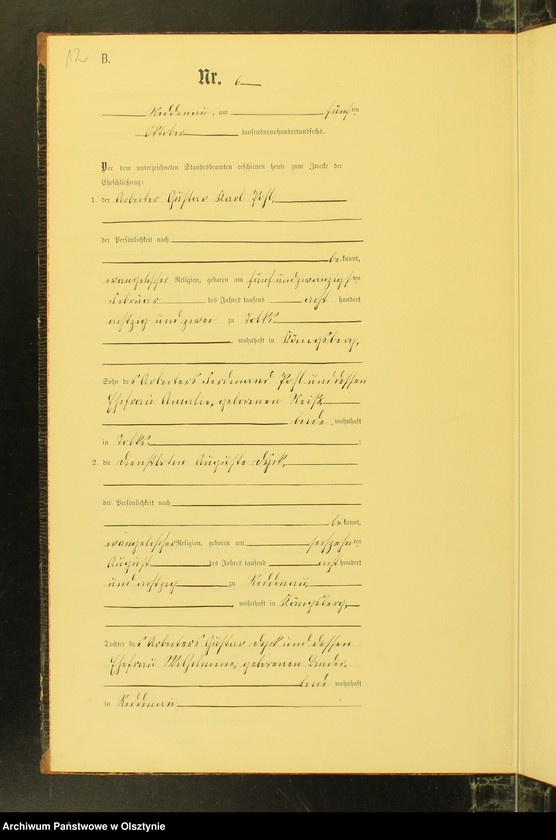 12
B.
Nr. 6
Reddenau, am fünften
Oktober tausendneunhundertundsechs.
Vor dem unterzeichneten Standesbeamten erschienen heute zum Zwecke der
Eheschließung:
1. der Arbeiter Gustav Karl Pohl,
der Persönlichkeit nach
bekannt,
evangelischer Religion, geboren am fünfundzwanzigsten
Februar des Jahres tausend acht hundert
achtzig und zwei zu Tolks
, wohnhaft in Königsberg,
Sohn des Arbeiters Ferdinand Pohl und dessen
Ehefrau Amalie, geborenen
beide, wohnhaft
in Tolks;
2. die Dienstboten Auguste
der Persönlichkeit nach
bekannt,
evangelischer Religion, geboren am sechzehnten
August des Jahres tausend acht hundert
und achtzig zu Reddenau,
, wohnhaft in Königsberg,
Tochter des Arbeiters Gustav und dessen
Ehefrau Wilhelmine, geborenen
beide wohnhaft
in Reddenau
Archiwum Państwowe w Olsztynie